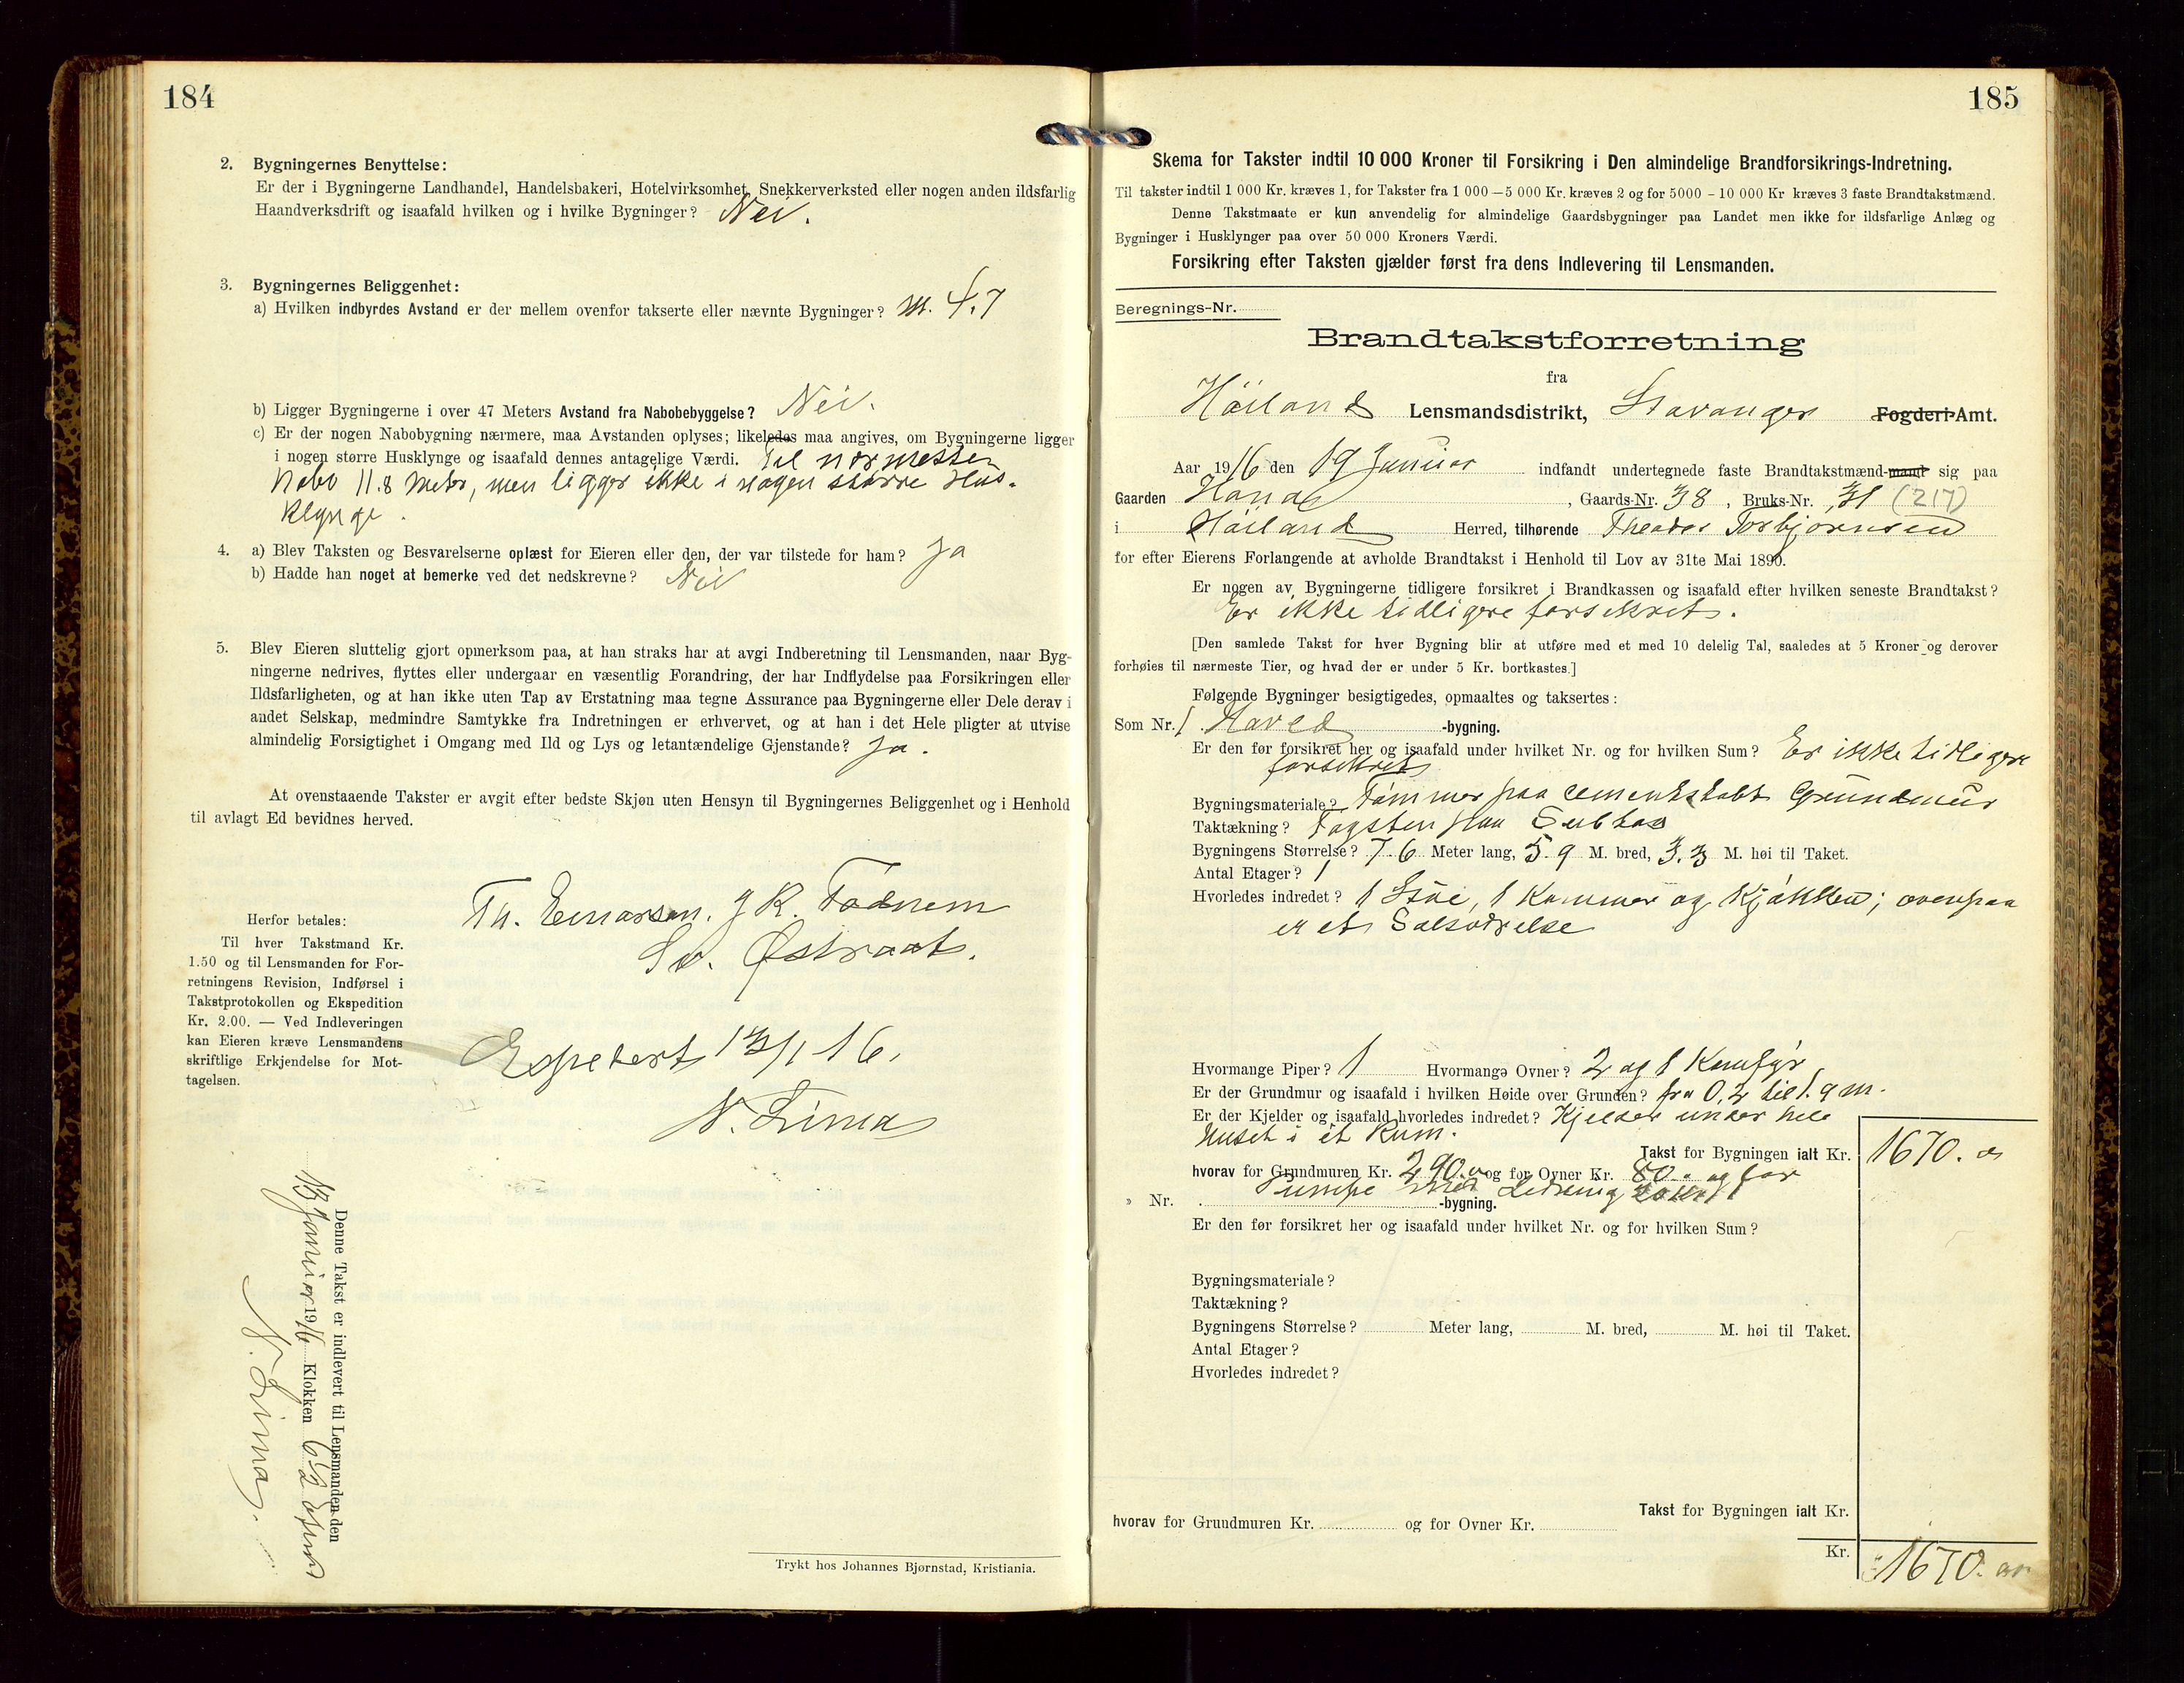 184
2. Bygningernes Benyttelse:
Er der i Bygningerne Landhandel, Handelsbakeri, Hotelvirksomhet, Snekkerverksted eller nogen anden ildsfarlig
Haandverksdrift og isaafald hvilken og i hvilke Bygninger? Nei.
3. Bygningernes Beliggenhet:
a) Hvilken indbyrdes Avstand er der mellem ovenfor takserte eller nævnte Bygninger? m. 4.7
b) Ligger Bygningerne i over 47 Meters Avstand fra Nabobebyggelse? Nei.
c) Er der nogen Nabobygning nærmere, maa Avstanden oplyses; likeledes maa angives, om Bygningerne ligger
i nogen større Husklynge og isaafald dennes antagelige Værdi. Til nærmeste
Nabo 11.8 Meter, men ligger ikke i nogen større Hus-
klynge.
4. a) Blev Taksten og Besvarelserne oplæst for Eieren eller den, der var tilstede for ham? Ja
b) Hadde han noget at bemerke ved det nedskrevne? Nei
5. Blev Eieren sluttelig gjort opmerksom paa, at han straks har at avgi Indberetning til Lensmanden, naar Byg-
ningerne nedrives, flyttes eller undergaar en væsentlig Forandring, der har Indflydelse paa Forsikringen eller
Ildsfarligheten, og at han ikke uten Tap av Erstatning maa tegne Assurance paa Bygningerne eller Dele derav i
andet Selskap, medmindre Samtykke fra Indretningen er erhvervet, og at han i det Hele pligter at utvise
almindelig Forsigtighet i Omgang med Ild og Lys og letantændelige Gjenstande? Ja.
At ovenstaaende Takster er avgit efter bedste Skjøn uten Hensyn til Bygningernes Beliggenhet og i Henhold
til avlagt Ed bevidnes herved.
Th. Einarsen. J K. Fodnem
Sv. Østraat.
Herfor betales:
Til hver Takstmand Kr.
1.50 og til Lensmanden for For-
retningens Revision, Indførsel i
Takstprotokollen og Ekspedition
Kr. 2.00. — Ved Indleveringen
kan Eieren kræve Lensmandens
skriftlige Erkjendelse for Mot-
tagelsen.
Expedert 13/1 16.
N. Lima
Denne Takst er indlevert til Lensmanden den
13 Januar 1916 Klokken 6½ Efmd
N. Lima.
Trykt hos Johannes Bjørnstad, Kristiania.
185
Skema for Takster indtil 10 000 Kroner til Forsikring i Den almindelige Brandforsikrings-Indretning.
Til takster indtil 1 000 Kr. kræves 1, for Takster fra 1 000 – 5 000 Kr. kræves 2 og for 5000 – 10 000 Kr kræves 3 faste Brandtakstmænd.
Denne Takstmaate er kun anvendelig for almindelige Gaardsbygninger paa Landet men ikke for ildsfarlige Anlæg og
Bygninger i Husklynger paa over 50 000 Kroners Værdi.
Forsikring efter Taksten gjælder først fra dens Indlevering til Lensmanden.
Beregnings-Nr.
Brandtakstforretning
fra
Høiland Lensmandsdistrikt, Stavanger Fogderi-Amt.
Aar 1916 den 19 Januar indfandt undertegnede faste Brandtakstmænd-mand sig paa
Gaarden Hana, Gaards-Nr. 38, Bruks-Nr. 31 (217)
i Høiland Herred, tilhørende Theodor Torbjørnsen
for efter Eierens Forlangende at avholde Brandtakst i Henhold til Lov av 31te Mai 1890.
Er nogen av Bygningerne tidligere forsikret i Brandkassen og isaafald efter hvilken seneste Brandtakst?
Er ikke tidligere forsikret.
[Den samlede Takst for hver Bygning blir at utføre med et med 10 delelig Tal, saaledes at 5 Kroner og derover
forhøies til nærmeste Tier, og hvad der er under 5 Kr. bortkastes.]
Følgende Bygninger besigtigedes, opmaaltes og taksertes:
Som Nr. 1. Hoved -bygning.
Er den før forsikret her og isaafald under hvilket Nr. og for hvilken Sum? Er ikke tidligere
forsikret
Bygningsmateriale? Tømmer paa cementstøbt Grundmur
Taktækning? Tagsten paa Subtag
Bygningens Størrelse? 7.6 Meter lang, 5.9 M. bred, 3.3 M. høi til Taket.
Antal Etager? 1
Hvorledes indredet? 1 Stue, 1 Kammer og Kjøkken; ovenpaa
er et Salsværelse
Hvormange Piper? 1 Hvormange Ovner? 2 og 1 Komfyr
Er der Grundmur og isaafald i hvilken Høide over Grunden? fra 0,2 til 1.9 m.
Er der Kjelder og isaafald hvorledes indredet? Kjelder under hele
Huset i et Rum.
Takst for Bygningen ialt Kr. 1670.
hvorav for Grundmuren Kr. 290.00 og for Ovner Kr. 80.- og for
Pumpe med Ledning
» Nr. -bygning.
Er den før forsikret her og isaafald under hvilket Nr. og for hvilken Sum?
Bygningsmateriale?
Taktækning?
Bygningens Størrelse? Meter lang, M. bred, M. høi til Taket.
Antal Etager?
Hvorledes indredet?
Takst for Bygningen ialt Kr.
hvorav for Grundmuren Kr. og for Ovner Kr.
Kr. 1670.